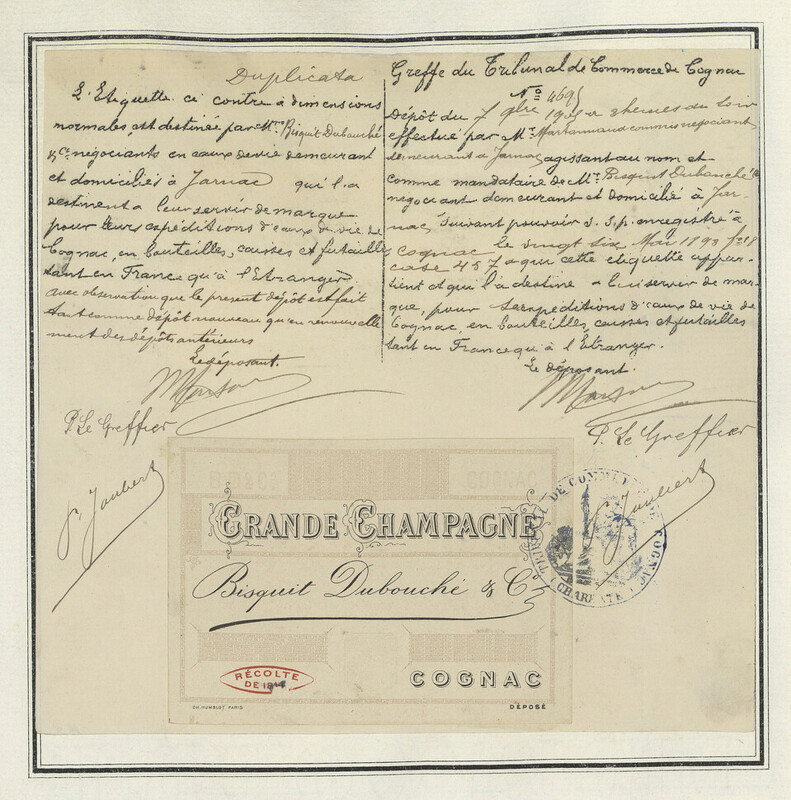 Duplicata
L'Etiquette ci contre à dimensions
normales est destinée par Mrs Bisquit Dubouché
& Ce négociants en eaux de vie demeurant
et domiciliés à Jarnac qui l'a
destinent a leur servir de marque
pour leurs expéditions d'eaux de vie de
Cognac, en bouteilles, caisses et futailles
tant en France qu'à l'Etranger
avec observation que le présent dépôt est fait
tant comme dépôt nouveau qu'en renouvelle
ment des dépôts antérieurs
Le déposant.
P. Le Greffier
P. Joubert
Greffe du Tribunal de Commerce de Cognac
No 4695
Dépôt du 7 9bre heures du soir
effectué par Mr commis négociant
demeurant à Jarnac agissant au nom et
comme mandataire de Mrs Bisquit Dubouché & Ce
négociant demeurant et domicilié à Jar-
nac, suivant pouvoir S.S.p. enregistré à
Cognac le vingt six Mai 1893 fo 18
case 457 a que cette etiquette appar-
tient et qui l'a destine a lui servir de mar-
que, pour ses expéditions d'eaux de vie de
Cognac, en bouteilles, caisses et futailles
tant en France qu'à l'Etranger.
Le déposant.
P. Le Greffier
P. Joubert
GRANDE CHAMPAGNE
Bisquit Dubouché & Co
RÉCOLTE
DE
COGNAC
CH. HUMBLOT PARIS
DÉPOSÉ
TRIBUNAL DE COMMERCE DE COGNAC
(CHARENTE)